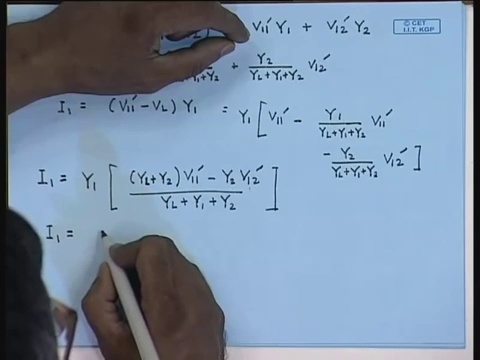 V₁₁′ Y₁ + V₁₂′ Y₂
© CET
I.I.T. KGP
+ Y₂/(Y_L+Y₁+Y₂) V₁₂′
I₁ = (V₁₁′ − V_L) Y₁ = Y₁ [ V₁₁′ − Y₁/(Y_L+Y₁+Y₂) V₁₁′
− Y₂/(Y_L+Y₁+Y₂) V₁₂′ ]
I₁ = Y₁ [ ((Y_L+Y₂) V₁₁′ − Y₂ V₁₂′)/(Y_L + Y₁ + Y₂) ]
I₁ =